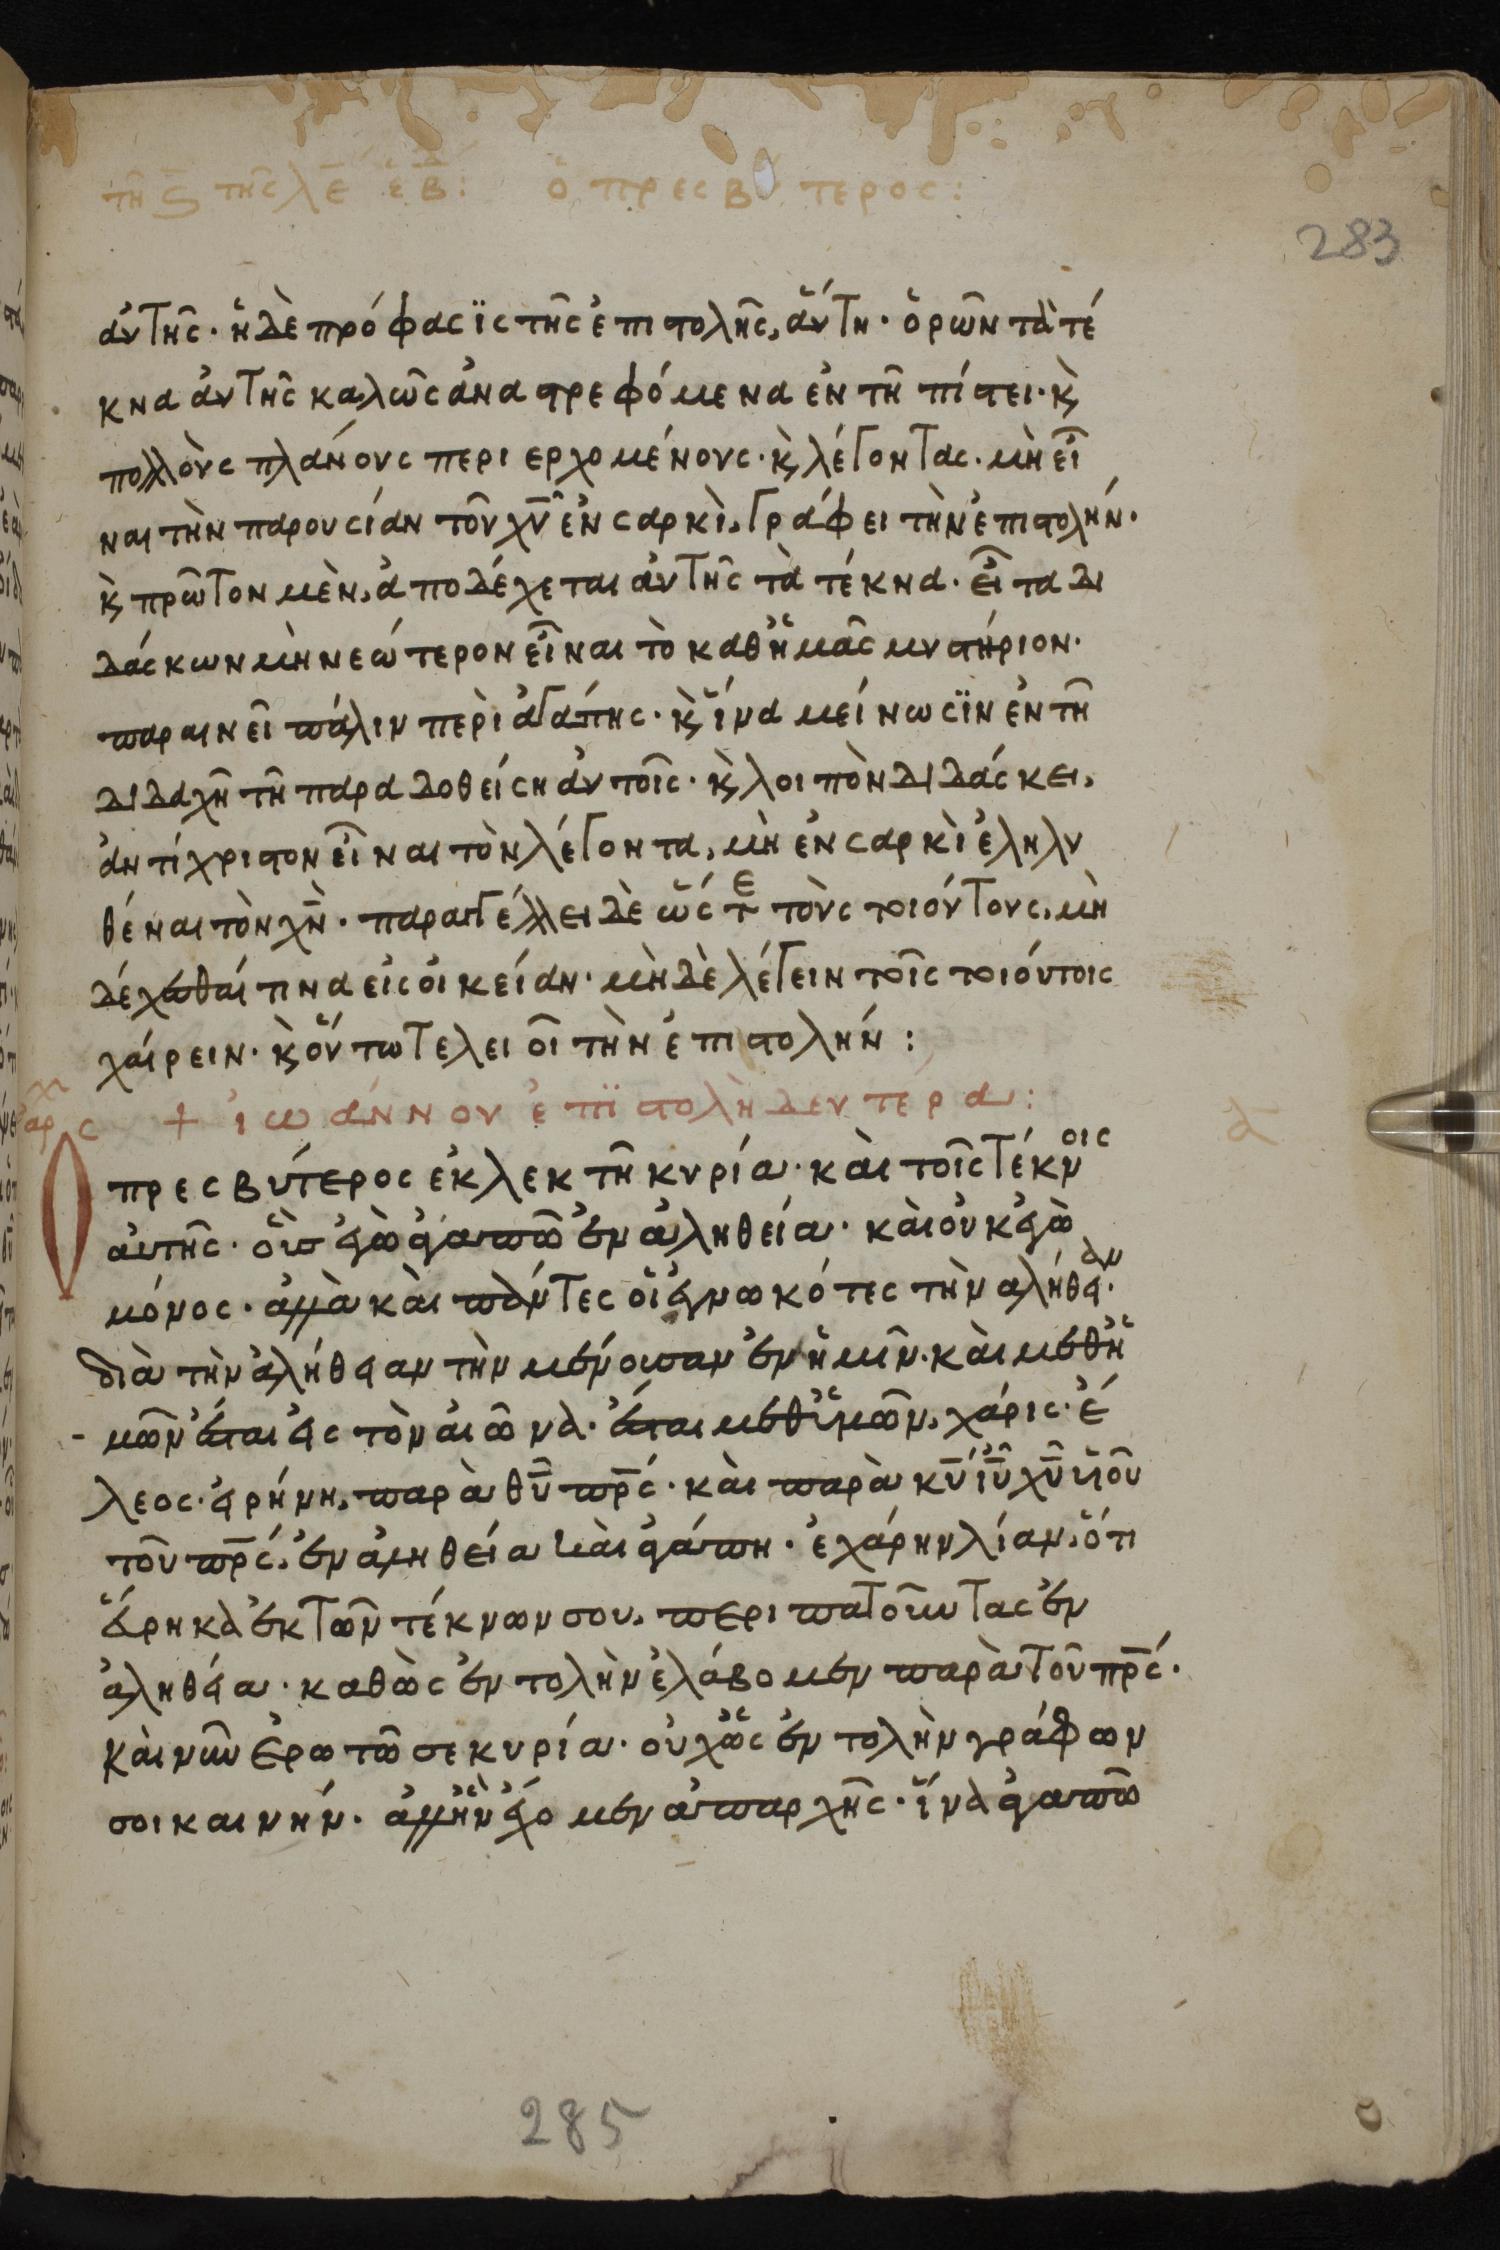 τῇ ϛ τῆς λε ἑβδ: ὁ πρεσβύτερος:
283
ἀυτῆς· ἡ δὲ πρόφασϊς τῆς ἐπιστολῆς, ἅυτη· ὁρῶν τὰ τέ
κνα ἀυτῆς καλῶς ἀναστρεφόμενα ἐν τῆ πίστει· κ̀
πολλὸυς πλάνους περιερχομένους· κ̀ λέγοντας· μὴ εἶ
ναι τὴν παρουσίαν τοῦ χ̅υ̅ ἐν σαρκὶ, γράφει τὴν ἐπιστολήν·
κ̀ πρῶτον μὲν, ἀποδέχεται ἀυτῆς τὰ τέκνα· εἶτα δι
δάσκων μὴ νεώτερον εἶναι τὸ καθἡμᾶς μυστήριον·
παραινεῖ πάλιν περὶ ἀγάπης· κ̀ ἵνα μείνωσϊν ἐν τῆ
διδαχῆ τῆ παραδοθείση ἀυτοῖς· κ̀ λοιπὸν διδάσκει,
ἀντίχριστον εἶναι τὸν λέγοντα, μὴ ἐν σαρκὶ ἐληλυ
θέναι τὸν χ̅ν̅· παραγγέλλει δὲ ὥστε τὸυς τοιόυτους, μὴ
δέχεσθαί τινα εἰς οἰκείαν· μὴ δὲ λέγειν τοῖς τοιόυτοις
χαίρειν· κ̀ ὅυτω τελειοῖ τὴν ἐπιστολήν:
+ ἰωάννου ἐπϊστολὴ δευτέρα:
Ο πρεσβύτερος ἐκλεκτῆ κυρία· κὰι τοῖς τέκνοις
ἀυτῆς· ὃυσ ἐγὼ ἀγαπῶ ἐν ἀληθεία· κὰι ὀυκ ἐγὼ
μόνος· ἀλλὰ κὰι πάντες οἱ ἐγνωκότες τὴν αλήθειαν·
διὰ τὴν ἀλήθειαν τὴν μένουσαν ἐν ἡμῖν· κὰι μεθἡ
μῶν ἔσται εἰς τὸν ἀιῶνα· ἔσται μεθἡμῶν, χάρις· ἔ
λεος· εἰρήνη, παρὰ θ̅υ̅ π̅ρ̅ς· κὰι παρὰ κ̅υ̅ ἰ̅υ̅ χ̅υ̅ ὑιοῦ
τοῦ π̅ρ̅ς, ἐν ἀληθεία κὰι ἀγάπη· ἐχάρην λίαν, ὅτι
ἕυρηκα ἐκ τῶν τέκνων σου, περιπατοῦντας ἐν
ἀληθεία· καθὼς ἐντολὴν ἐλάβομεν παρὰ τοῦ π̅ρ̅ς·
κὰι νῦν ἐρωτῶ σε κυρία· ὀυχὡς ἐντολὴν γράφων
σοι καινήν· ἀλλ ἣν ἔιχομεν ἀπαρχῆς· ἵνα ἀγαπῶ
285